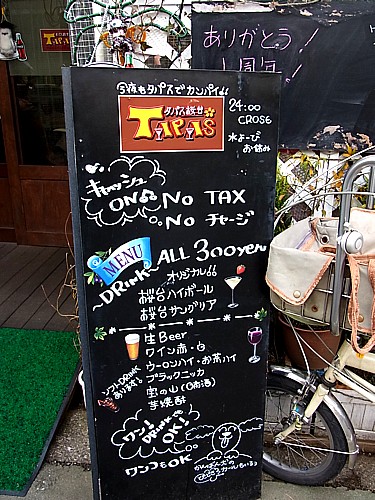 TAPAS
ありがとう!
1周年!!
今夜もタパスでカンパイ!!
タパス桜台
TAPAS
24:00
CROSE
水よーび
お休み
キャッシュ
ON
No TAX
No チャージ
MENU
~DRink~
ALL 300yen
オリジナル
桜台ハイボール
桜台サングリア
生Beer
ワイン赤・白
ウーロンハイ・お茶ハイ
ブラックニッカ
宝の山(日本酒)
芋焼酎
ソフトDRink
あります。
ワン!
DRinkでも
OK!
ワンコもOK